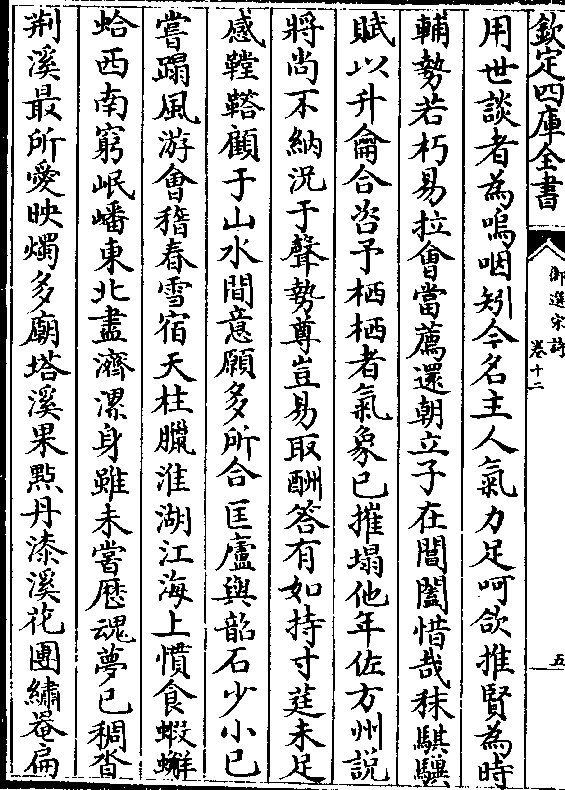 欽定四庫全書
御選宋詩
卷十二
五
用世談者為嗚咽矧今名主人氣力足呵欱推賢為時
輔勢若朽易拉會當薦還朝立子在閶闔惜哉秣騏驥
賦以升龠合咨予栖栖者氣象已摧塌他年佐方州説
將尚不納況于聲勢尊豈易取酬答有如持寸莛未足
感鞺鞳顧于山水間意願多所合匡廬與韶石少小已
嘗蹋風游會稽春雪宿天柱臘淮湖江海上慣食蝦蠏
蛤西南窮岷嶓東北盡濟漯身雖未嘗歴魂夢已稠沓
荆溪最所愛映燭多廟塔溪果㸃丹漆溪花團繡罨扁